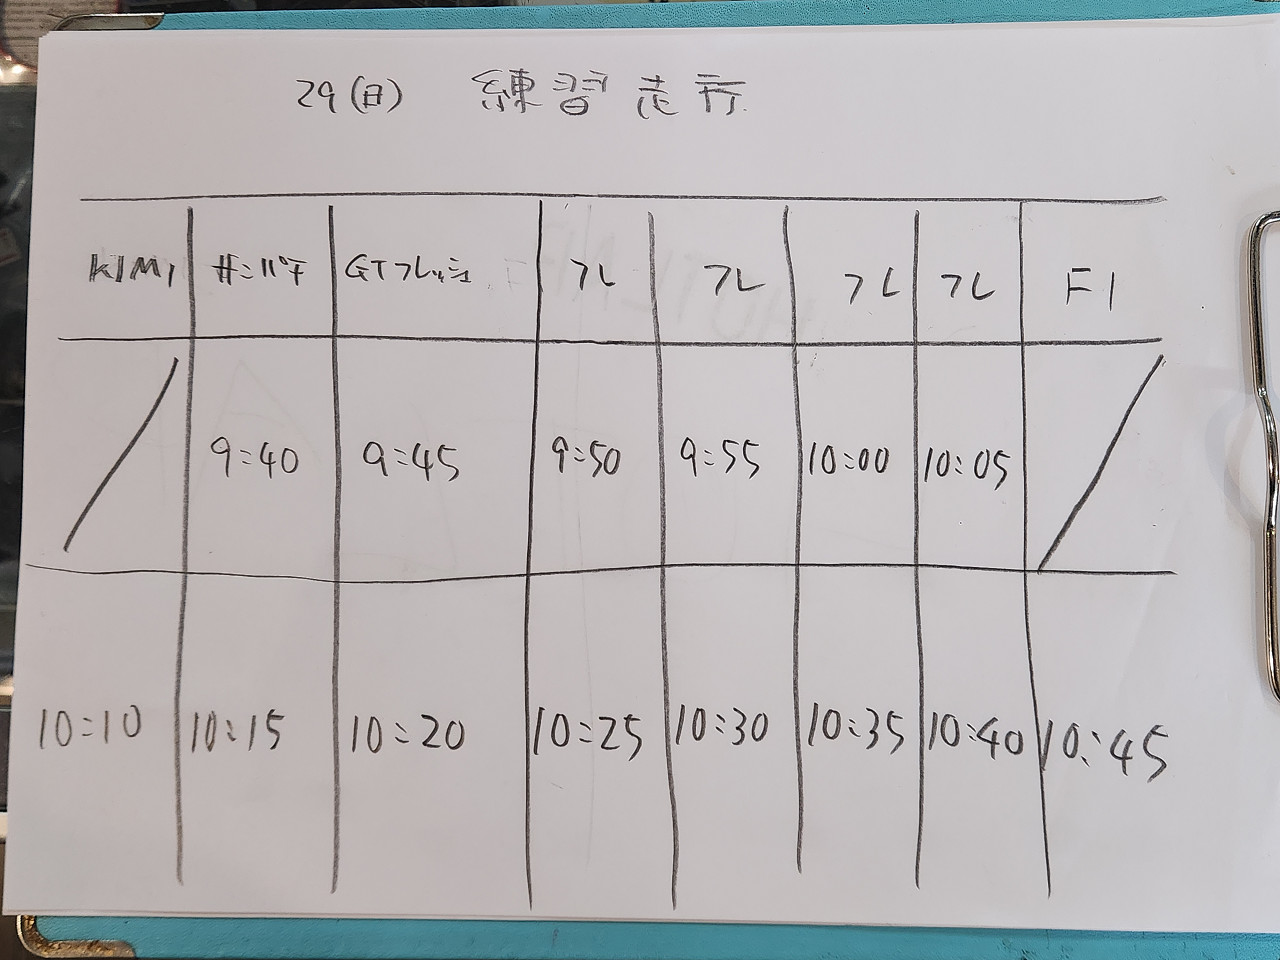 29(日) 練習走行
KIMI サニパチ GTフレッシュ フレ フレ フレ フレ F1
9:40 9:45 9:50 9:55 10:00 10:05
10:10 10:15 10:20 10:25 10:30 10:35 10:40 10:45